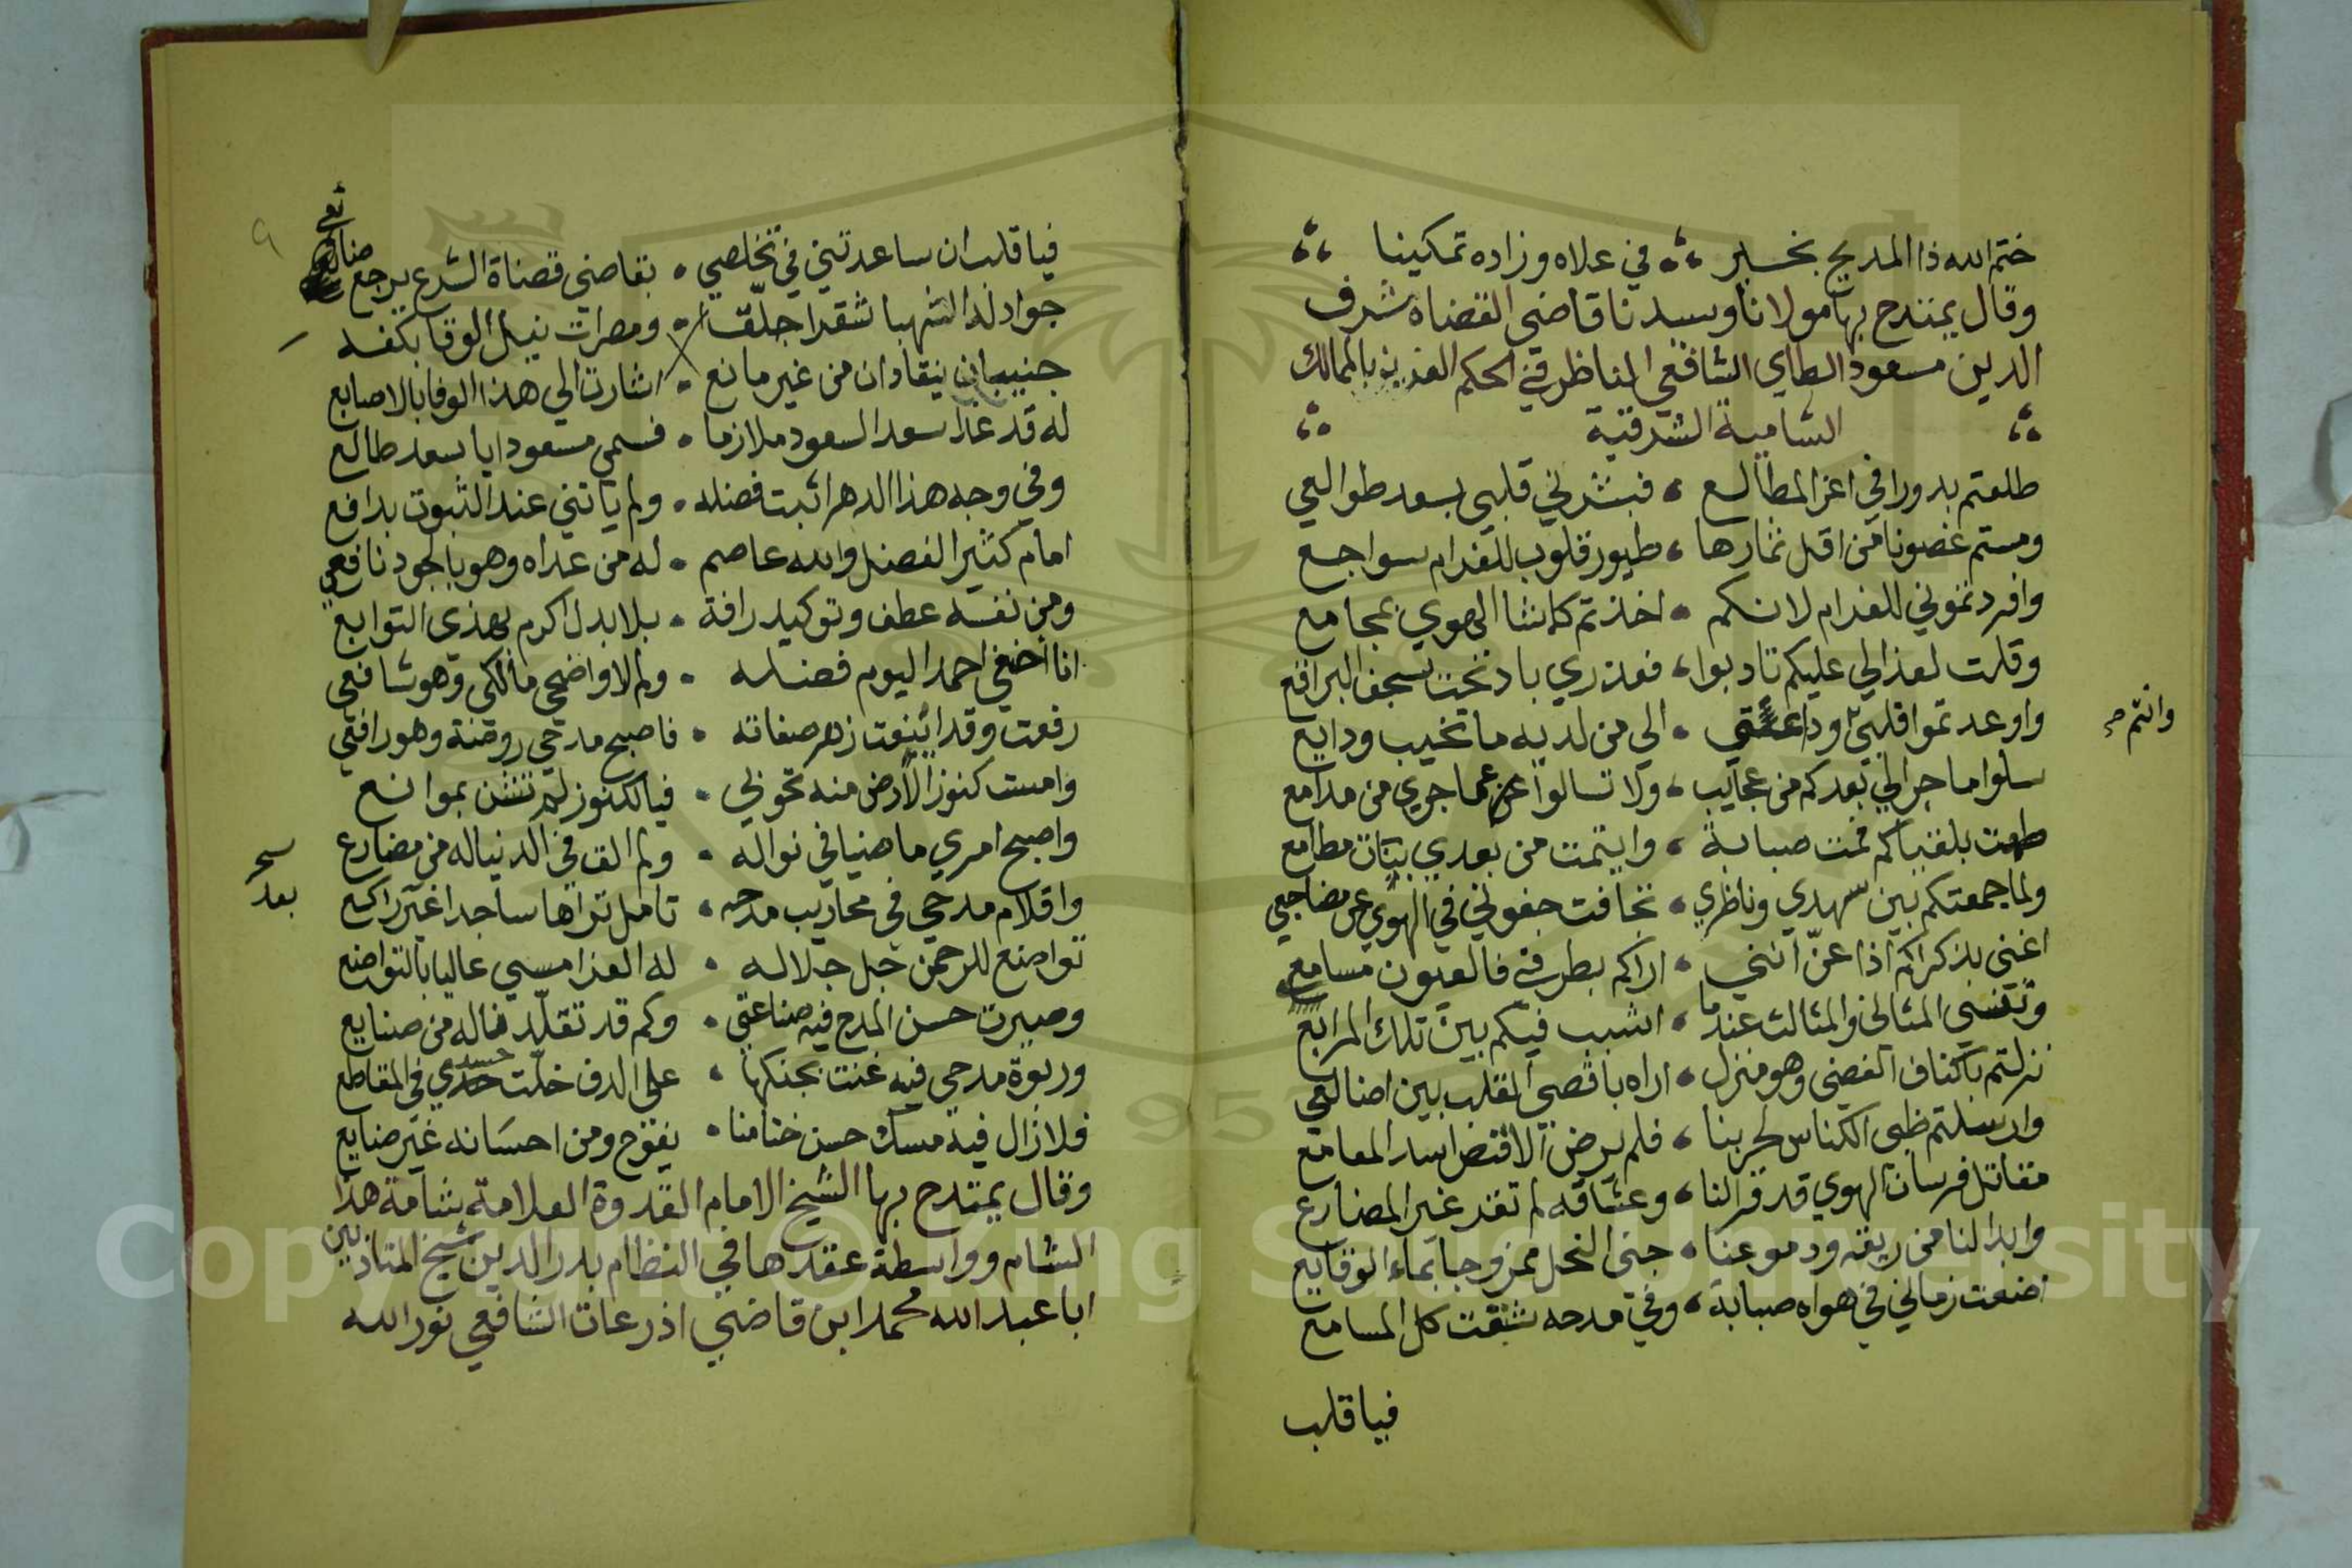 ختم الله ذا المديح بخير في علاه وزاده تمكينا
وقال يمتدح بها مولانا وسيدنا قاضي القضاة شرف
الدين مسعود الطاي الشافعي المناظر في الحكم العزيز بالممالك
الشامية الشرقية
طلعتم بدورا في اعز المطالع فبشرني قلبي بسعد طوالعي
ومستم غصونا من اقل ثمارها طيور قلوب للغرام سواجع
وافردتموني للغرام لانكم اخذتم كما شا الهوي بمجامع
وقلت لعذالي عليكم تادبوا فعذري باد تحت سجف البراقع
واودعتموا قلبي وداعتي الي من لديه ما تخيب ودايع
وانتم
سلوا ما جرا لي بعدكم من عجايب ولا تسالوا عن عما جري من مدامع
طمعت بلقياكم فمت صبابة وايتمت من بعدي بنات مطامع
ولما جمعتكم بين سهدي وناظري تجافت جفوني في الهوي عن مضاجعي
اغنى بذكراكم اذا عن انني اراكم بطرفي فالعيون مسامع
وتقنيني المثاني والمثالث عندما اشبب فيكم بين تلك المرابع
نزلتم باكناف الغضى وهو منزل اراه باقصى القلب بين اضالعي
وارسلتم ظبى الكناس لحربنا فلم يرض الا قنص اسد المعامع
مقاتل فرسان الهوي قد قرا لنا وعشاقه لم تقد غير المضارع
وابدا لنا من ريقه ودموعنا جنى النحل ممزوجا بماء الوقايع
اضعت زماني في هواه صبابة وفي مدحه شنفت كل المسامع
فيا قلب
٩
فيا قلب ان ساعدتني في تخلصي بقاضي قضاة الشرع يرجع ضائعي
جواد له الشهبا شقرا جلق ومصرات نيل الوفا بكفه
جنيبان ينقادان من غير مانع اشارت الي هذا الوفا بالاصابع
له قد غدا سعد السعود ملازما فسمى مسعودا يا سعد طالع
وفي وجه هذا الدهر اثبت فضله ولم ياتني عند الثبوت بدافع
امام كثير الفضل والله عاصم له من عداه وهو بالجود نافعي
ومن نفسه عطف وتوكيد رافة بلا بدل اكرم بهذي التوابع
انا أضحي احمد اليوم فضله ولم لا واضحى مالكى وهو شافعي
رفعت وقد اينعت زهر صفاته فاصبح مدحي روضة وهو رافعي
وامست كنوز الارض منه تحوزلي فيا لكنوز لم تشن بموانع
واصبح امري ماضيا في نواله ولم الق في الدنيا له من مضارع
واقلام مدحي في محاريب مدحه تامل تراها ساجدا غير راكع
بعد
تواضع للرحمن جل جلاله له العز امسي عاليا بالتواضع
وصيرت حسن المدح فيه صناعتي وكم قد تقلد فاله من صنايع
وربوة مدحي فيه غنت بجنكها على الدف خلت حسدي في المقاطع
فلا زال فيه مسك حسن ختامنا يفوح ومن احسانه غير ضايع
وقال يمتدح بها الشيخ الامام القدوة العلامة شامة هذا
الشام وواسطة عقدها في النظام بدر الدين شيخ المتاذبين
ابا عبد الله محمد ابن قاضي اذرعات الشافعي نور الله